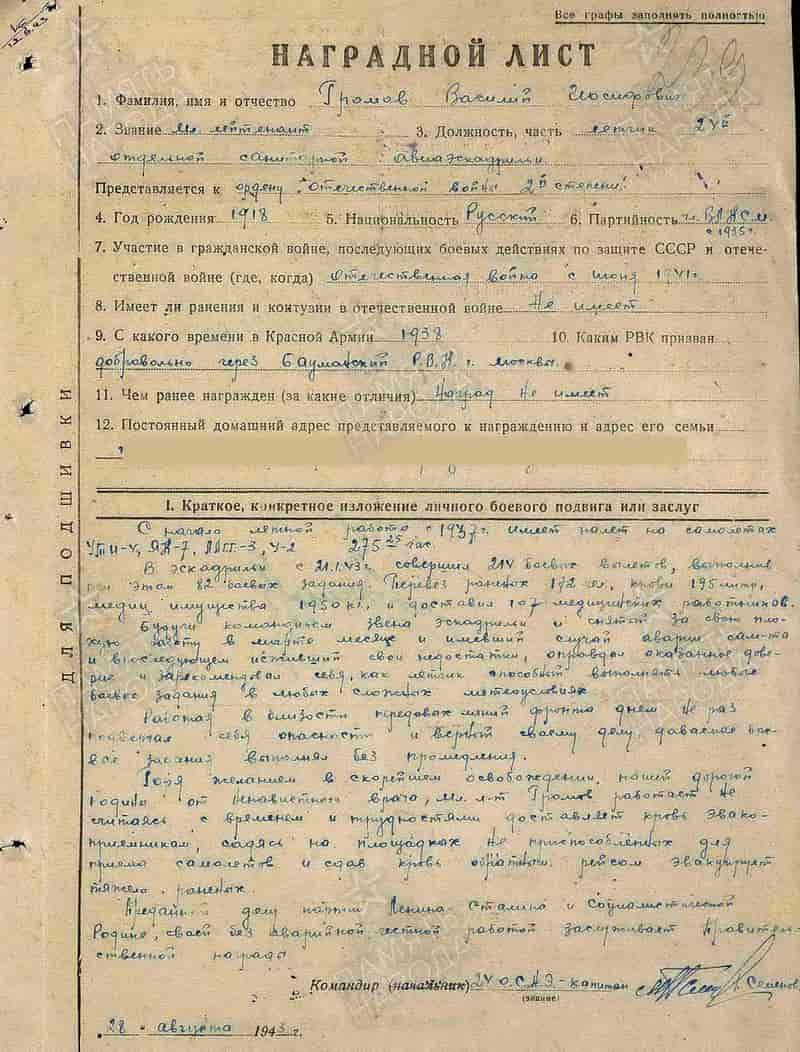 Все графы заполнять полностью
НАГРАДНОЙ ЛИСТ
1. Фамилия, имя и отчество Громов Василий
2. Звание мл. лейтенант 3. Должность, часть летчик 24й
отдельной санитарной авиаэскадрильи
Представляется к ордену „Отечественной войны 2й степени"
4. Год рождения 1918 5. Национальность Русский 6. Партийность чл. ВЛКСМ
с 1935г.
7. Участие в гражданской войне, последующих боевых действиях по защите СССР и отече-
ственной войне (где, когда) Отечественная война с июня 1941г.
8. Имеет ли ранения и контузии в отечественной войне Не имеет
9. С какого времени в Красной Армии 1938 10. Каким РВК призван
добровольно через Бауманский Р.В.К. г. Москвы.
11. Чем ранее награжден (за какие отличия) Наград не имеет
12. Постоянный домашний адрес представляемого к награждению и адрес его семьи
ДЛЯ ПОДШИВКИ
1. Краткое, конкретное изложение личного боевого подвига или заслуг
С начало летной работы с 1937г. имеет налет на самолетах
УТИ-4, ЯК-7, ЛАГГ-3, У-2 275 25 час.
В эскадрильи с 21.1.43г. совершил 214 боевых вылетов, выполнив
при этом 82 боевых задания. Перевез раненых 172 чел., крови 195 литр,
медиц имущества 1950 кг. и доставил 107 медицинских работников.
Будучи командиром звена эскадрильи и снятой за свою пло-
хую работу в марте месяце и имевший случай аварии сам-та
и впоследующем изживший свои недостатки, оправдал оказанное дове-
рие и зарекомендовал себя, как летчик способный выполнять любые
боевые задания в любых сложных метеоусловиях.
Работая в близости передовых линий фронта днем не раз
подвергал себя опасности и верный своему делу, даваемые
все задания выполнял без промедления.
Горя желанием в скорейшем освобождении нашей дорогой
Родины от ненавистного врага, мл. л-т Громов работает не
считаясь с временем и трудностями доставляет кровь эвако-
приемникам, садясь на площадках не приспособленных для
приема самолетов и сдав кровь обратным рейсом эвакуирует
тяжело раненых.
Преданный делу партии Ленина-Сталина и Социалистической
Родине, своей без аварийной честной работой заслуживает Правитель-
ственной награды
Командир (начальник) 24 О.С.А.Э. - капитан Семенов
(звание)
„28" августа 1943 г.